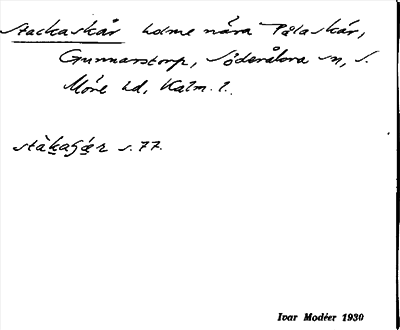 Stackaskär holme nära Pålaskär,
Gunnarstorp, Söderåkra sn, S.
Möre hd, Kalm. l.
s. 77.
Ivar Modéer 1930